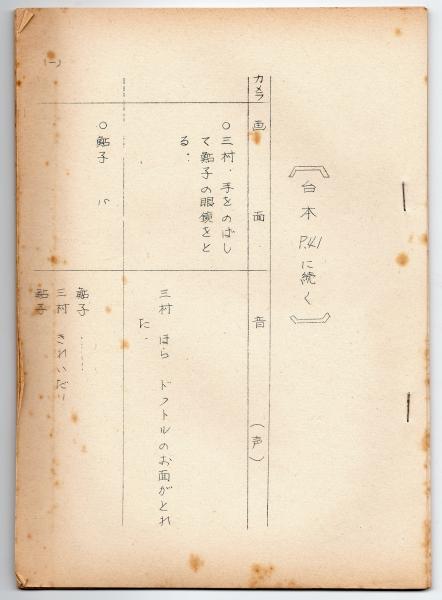 〔台本 P.41 に続く〕
カメラ 画面 音(声)
○三村、手をのばし
て鮎子の眼鏡をと
る。
三村 ほら ドクトルのお面がとれ
た。
○鮎子
鮎子 ……
三村 きれいだ!!
鮎子
(一)